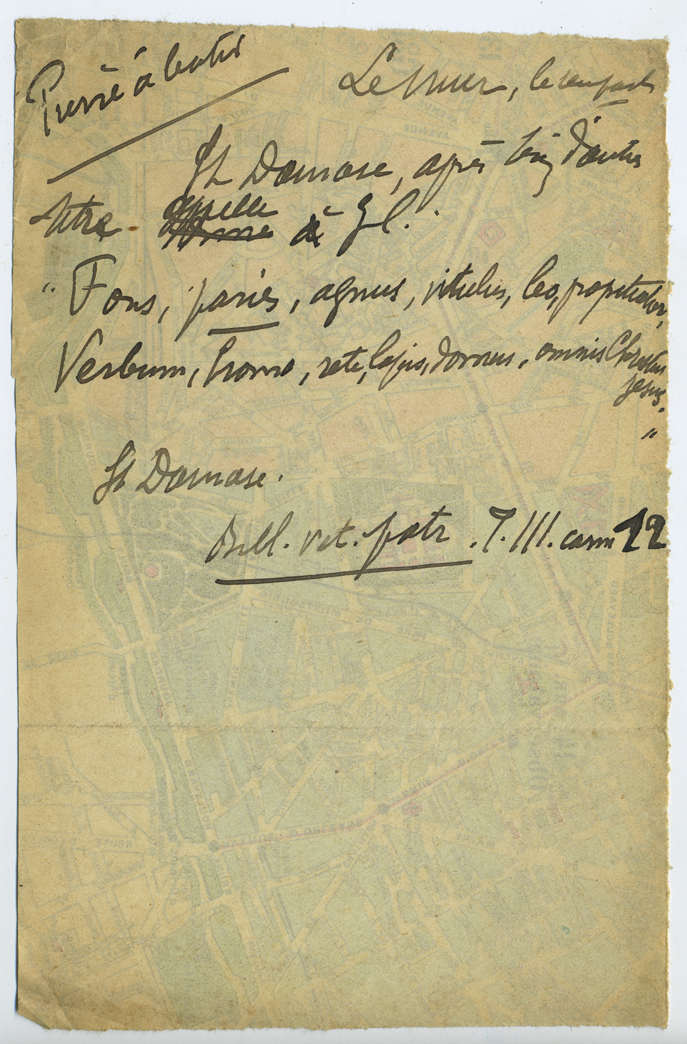 Pierre à bâtir
Le Mur, le rempart
St Damase, après bien d'autres
titres - appelle à J C. :
" Fons, paries, agnus, vitulus, leo, propitiator,
Verbum, homo, rete, lapis, domus, omnia Christus
Jesus.
"
St Damase.
Bibl. vet. patr. T. III. carm 12